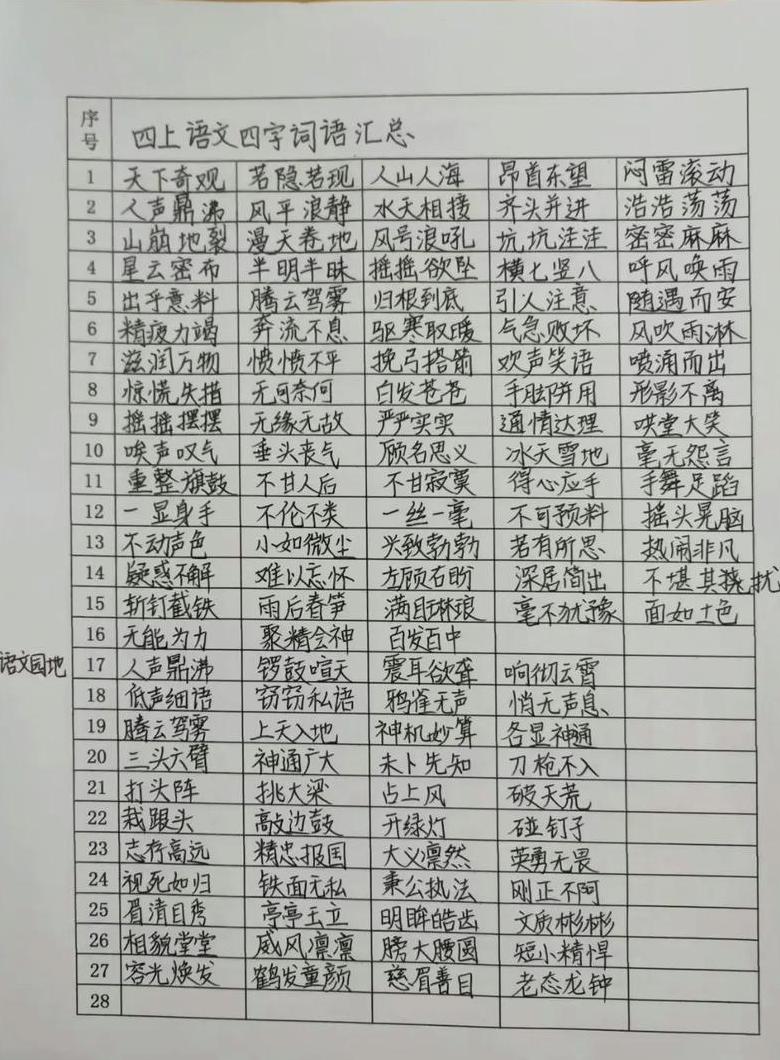 序号 四上语文四字词语汇总
1 天下奇观 若隐若现 人山人海 昂首东望 闷雷滚动
2 人声鼎沸 风平浪静 水天相接 齐头并进 浩浩荡荡
3 山崩地裂 漫天卷地 风号浪吼 坑坑洼洼 密密麻麻
4 星云密布 半明半昧 摇摇欲坠 横七竖八 呼风唤雨
5 出乎意料 腾云驾雾 归根到底 引人注意 随遇而安
6 精疲力竭 奔流不息 驱寒取暖 气急败坏 风吹雨淋
7 滋润万物 愤愤不平 挽弓搭箭 欢声笑语 喷涌而出
8 惊慌失措 无可奈何 白发苍苍 手脚并用 形影不离
9 摇摇摆摆 无缘无故 严严实实 通情达理 哄堂大笑
10 唉声叹气 垂头丧气 顾名思义 冰天雪地 毫无怨言
11 重整旗鼓 不甘人后 不甘寂寞 得心应手 手舞足蹈
12 一显身手 不伦不类 一丝一毫 不可预料 摇头晃脑
13 不动声色 小如微尘 兴致勃勃 若有所思 热闹非凡
14 疑惑不解 难以忘怀 左顾右盼 深居简出 不堪其扰
15 斩钉截铁 雨后春笋 满目琳琅 毫不犹豫 面如土色
16 无能为力 聚精会神 百发百中
语文园地 17 人声鼎沸 锣鼓喧天 震耳欲聋 响彻云霄
18 低声细语 窃窃私语 鸦雀无声 悄无声息
19 腾云驾雾 上天入地 神机妙算 各显神通
20 三头六臂 神通广大 未卜先知 刀枪不入
21 打头阵 挑大梁 占上风 破天荒
22 栽跟头 敲边鼓 开绿灯 碰钉子
23 志存高远 精忠报国 大义凛然 英勇无畏
24 视死如归 铁面无私 秉公执法 刚正不阿
25 眉清目秀 亭亭玉立 明眸皓齿 文质彬彬
26 相貌堂堂 威风凛凛 膀大腰圆 短小精悍
27 容光焕发 鹤发童颜 慈眉善目 老态龙钟
28